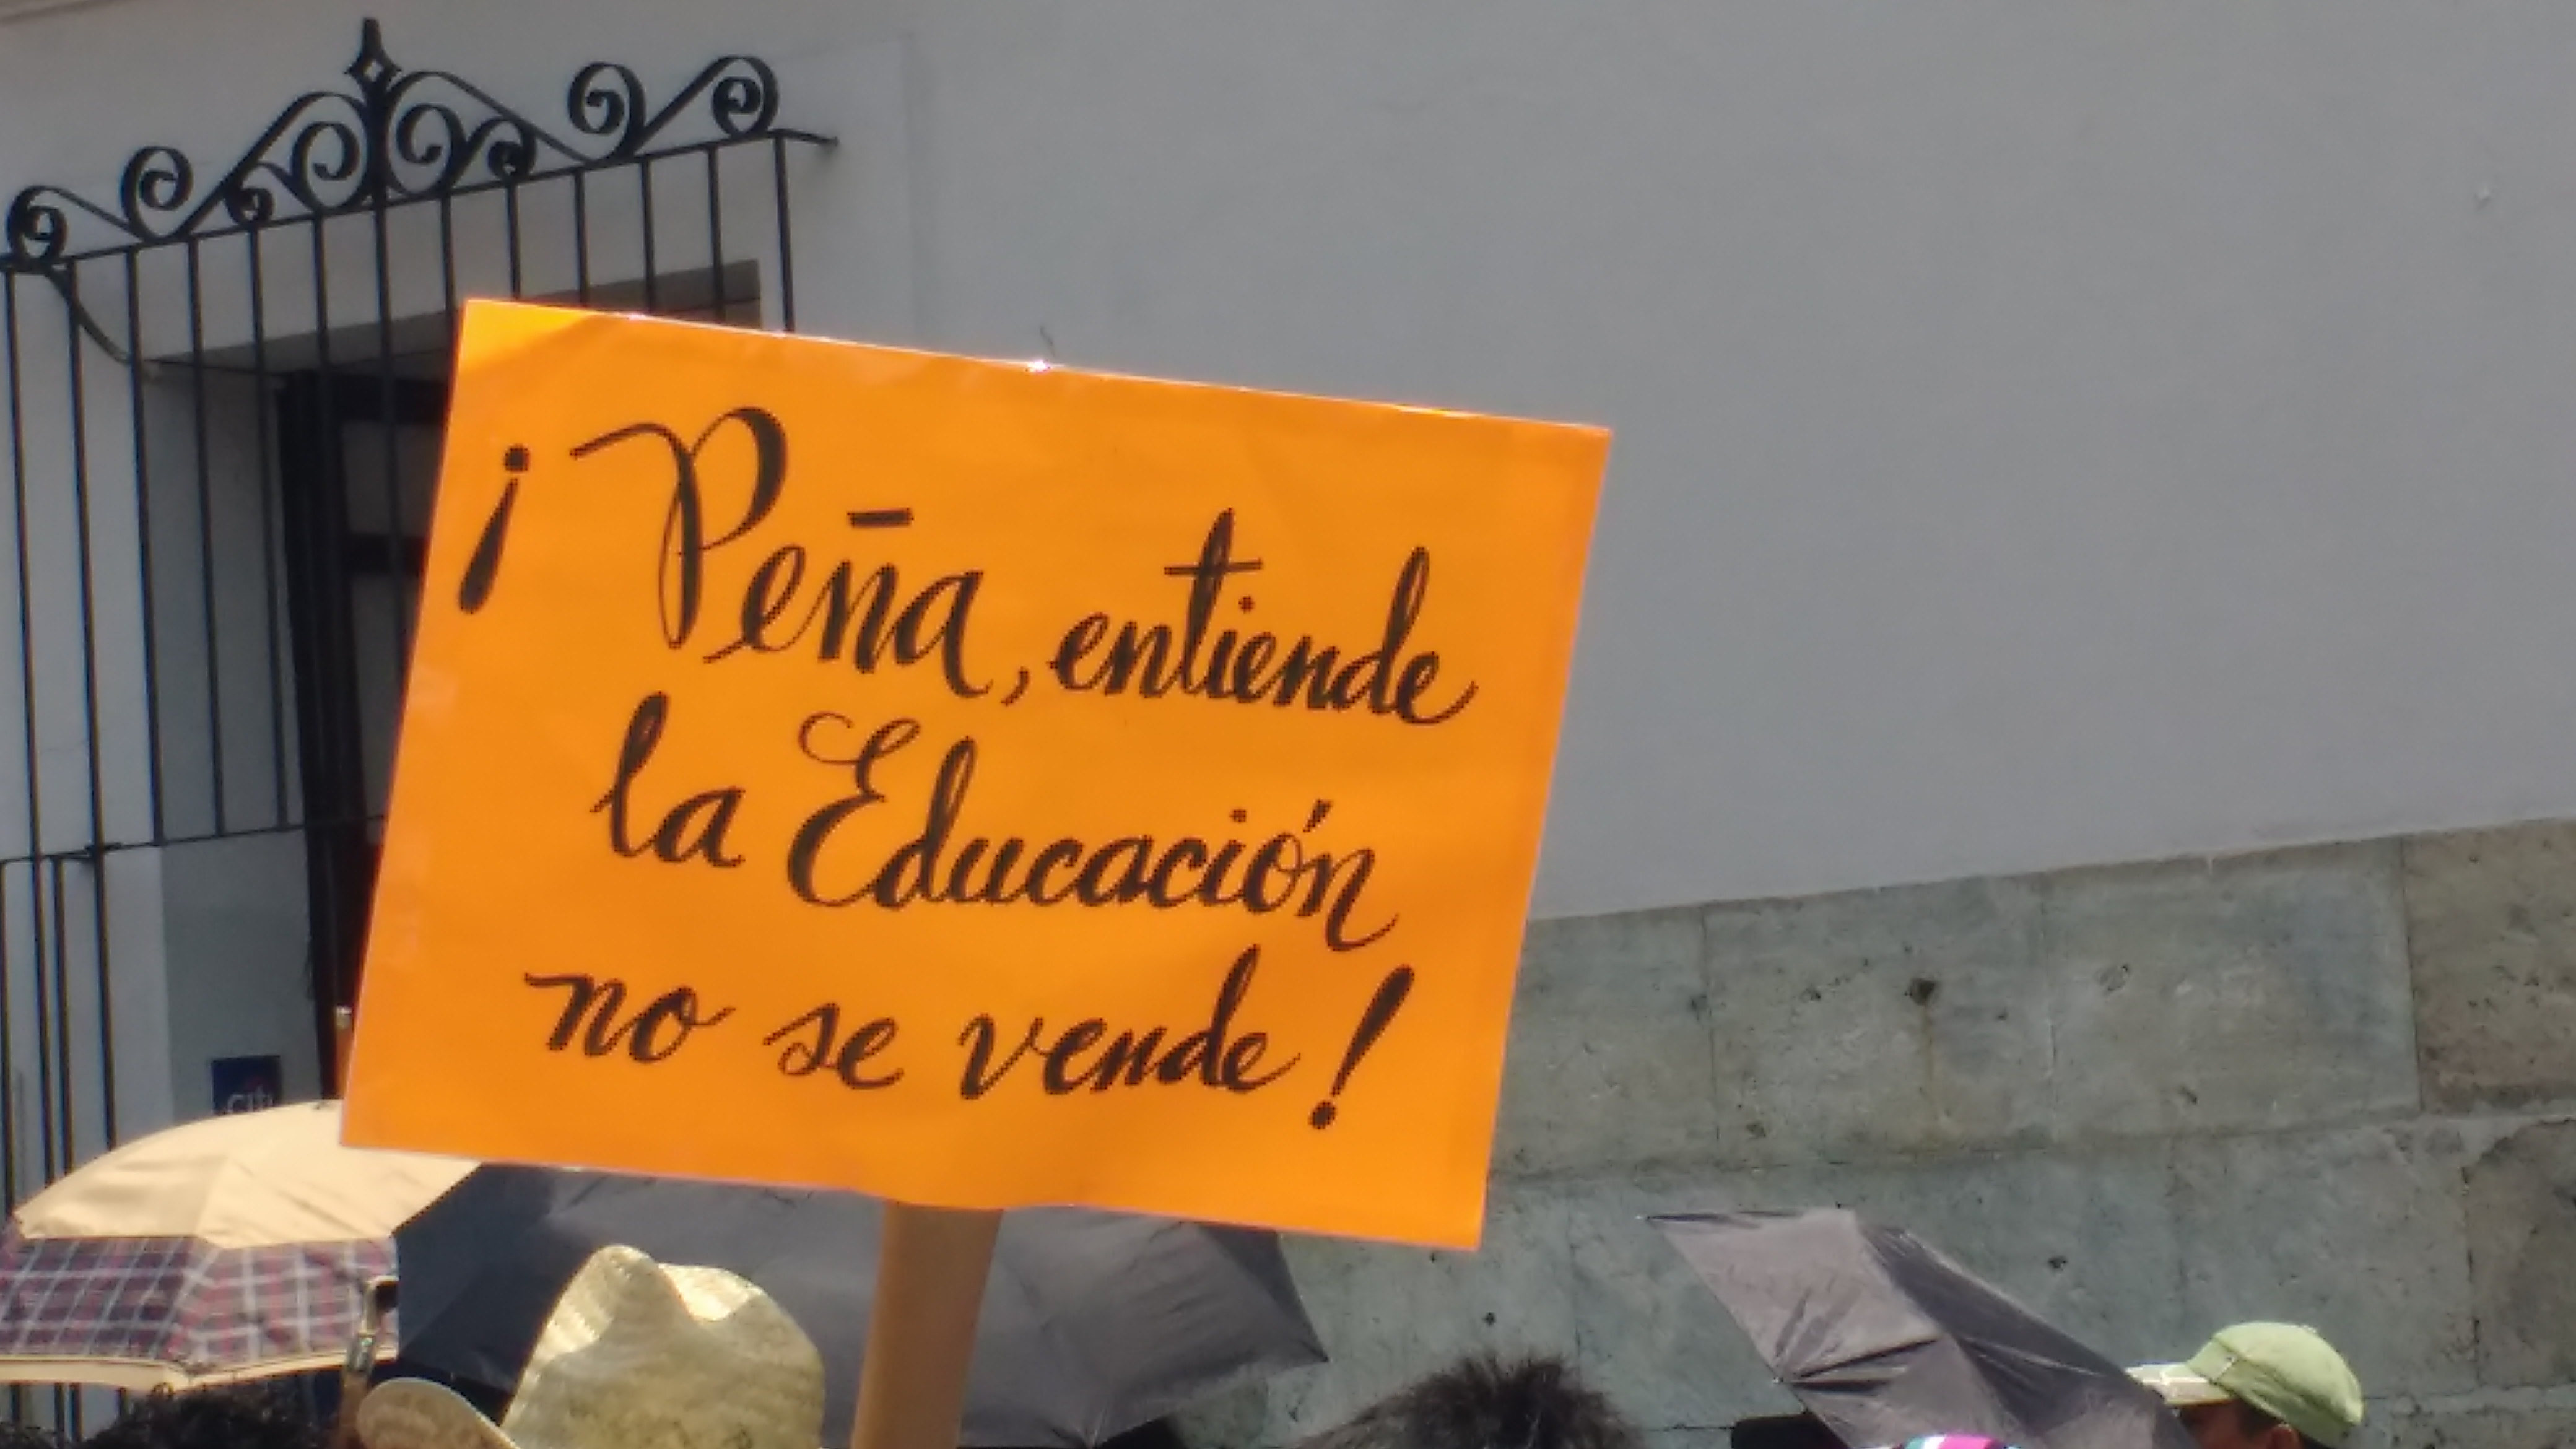 ¡Peña, entiende
la Educación
no se vende!
citi